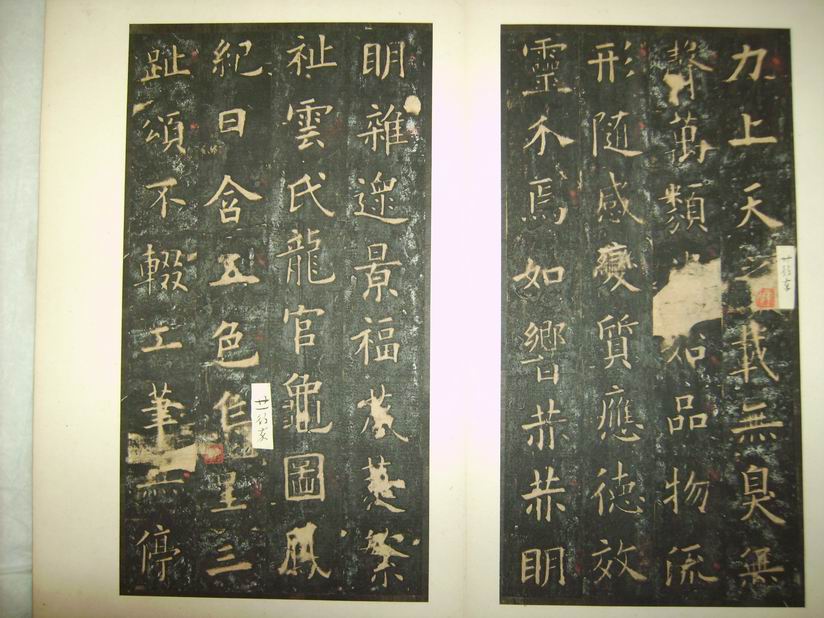 力上天之載無臭無
聲萬類始品物流
形隨感變質應德效
靈介焉如響赫赫明
明雜遝景福葳蕤繁
祉雲氏龍官龜圖鳳
紀日含五色烏呈三
趾頌不輟工筆無停